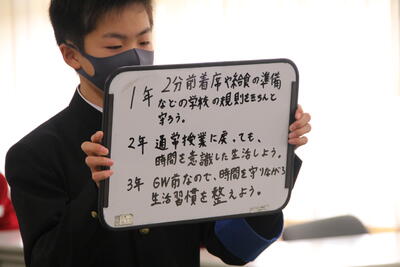 1年 2分前着席や給食の準備
などの学校の規則をきちんと
守ろう。
2年 通常授業に戻っても、
時間を意識した生活しよう。
3年 GW前なので、時間を守りながら
生活習慣を整えよう。